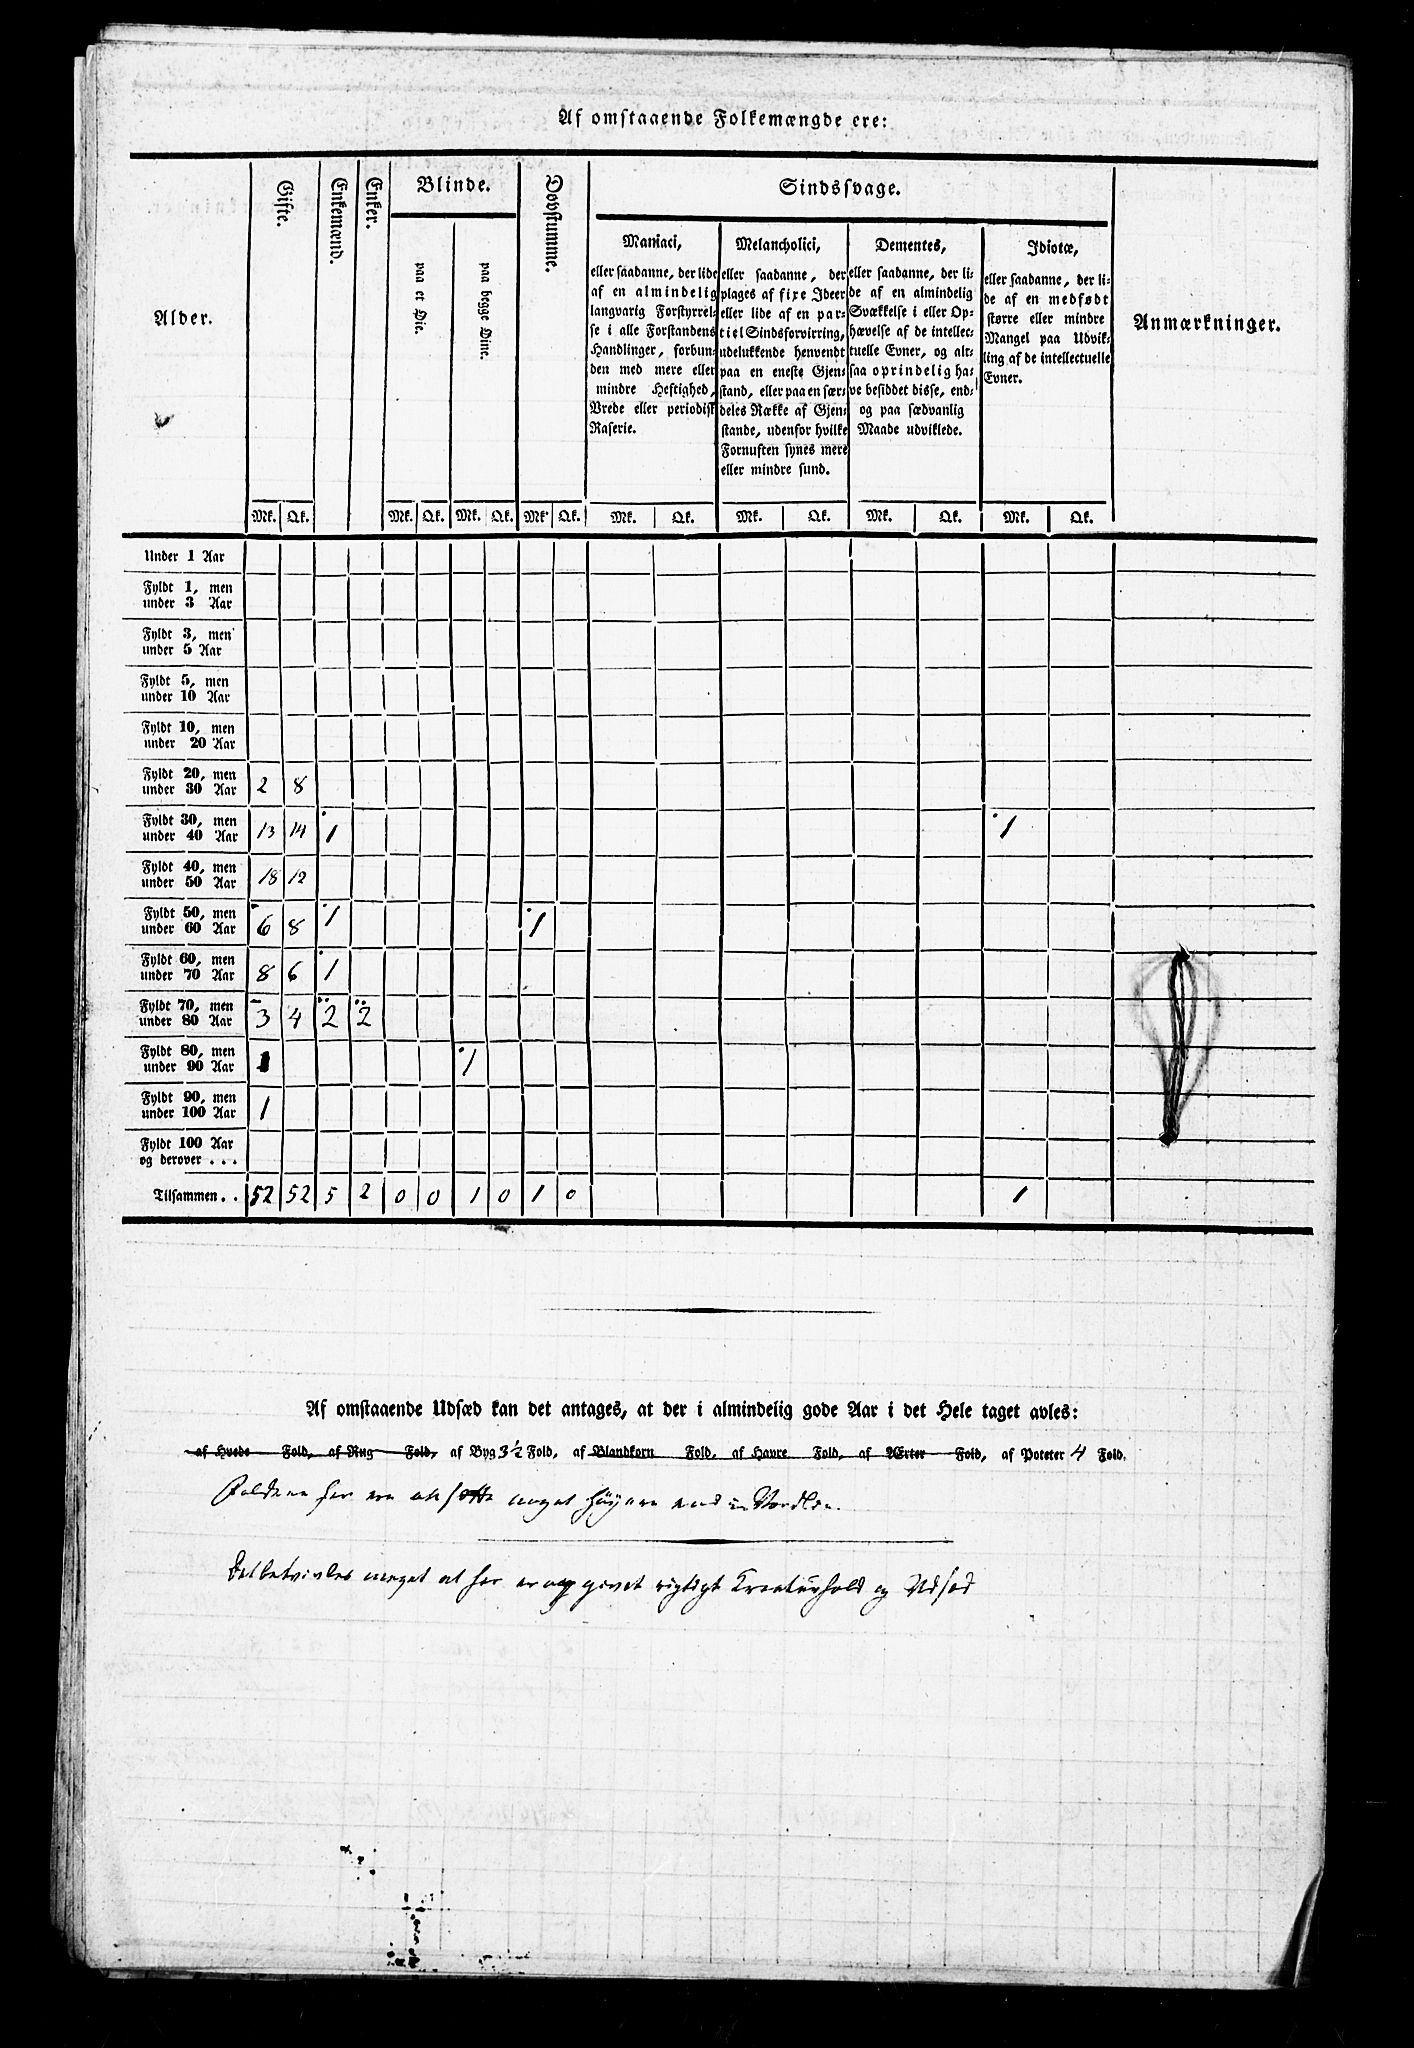 Af omstaaende Folkemængde ere:
Alder.
Gifte.
Enkemænd.
Enker.
Blinde.
paa et Øie.
paa begge Øine.
Døvstumme.
Sindssvage.
Maniaci,
eller saadanne, der lide
af en almindelig
langvarig Forstyrrel-
se i alle Forstandens
Handlinger, forbun-
den med mere eller
mindre Heftighed,
Vrede eller periodisk
Raserie.
Melancholici,
eller saadanne, der
plages af fixe Ideer
eller lide af en par-
tiel Sindsforvirring,
udelukkende henvendt
paa en eneste Gjen-
stand, eller paa en sær-
deles Række af Gjen-
stande, udenfor hvilke
Fornuften synes mere
eller mindre sund.
Dementes,
eller saadanne, der li-
de af en almindelig
Svækkelse i eller Op-
hævelse af de intellec-
tuelle Evner, og alt-
saa oprindelig ha-
ve besiddet disse, end-
og paa sædvanlig
Maade udviklede.
Idiotæ,
eller saadanne, der li-
de af en medfødt
større eller mindre
Mangel paa Udvik-
ling af de intellectuelle
Evner.
Anmærkninger.
Mk. Qk. Mk. Qk. Mk. Qk. Mk. Qk. Mk. Qk. Mk. Qk. Mk. Qk. Mk. Qk.
Under 1 Aar
Fyldt 1, men
under 3 Aar
Fyldt 3, men
under 5 Aar
Fyldt 5, men
under 10 Aar
Fyldt 10, men
under 20 Aar
Fyldt 20, men
under 30 Aar 2 8
Fyldt 30, men
under 40 Aar 13 14 1 1
Fyldt 40, men
under 50 Aar 18 12
Fyldt 50, men
under 60 Aar 6 8 1 1
Fyldt 60, men
under 70 Aar 8 6 1
Fyldt 70, men
under 80 Aar 3 4 2 2
Fyldt 80, men
under 90 Aar 1 1
Fyldt 90, men
under 100 Aar 1
Fyldt 100 Aar
og derover . . .
Tilsammen . . 52 52 5 2 0 0 1 0 1 0 1
Af omstaaende Udsæd kan det antages, at der i almindelig gode Aar i det Hele taget avles:
af Hvede Fold, af Rug Fold, af Byg 3½ Fold, af Blandkorn Fold, af Havre Fold, af Ærter Fold, af Poteter 4 Fold.
Foldene her ere ansatte meget høyere end i Nordlen.
Det betvivles meget at her er opgivet rigtigt Kreaturhold og Udsæd